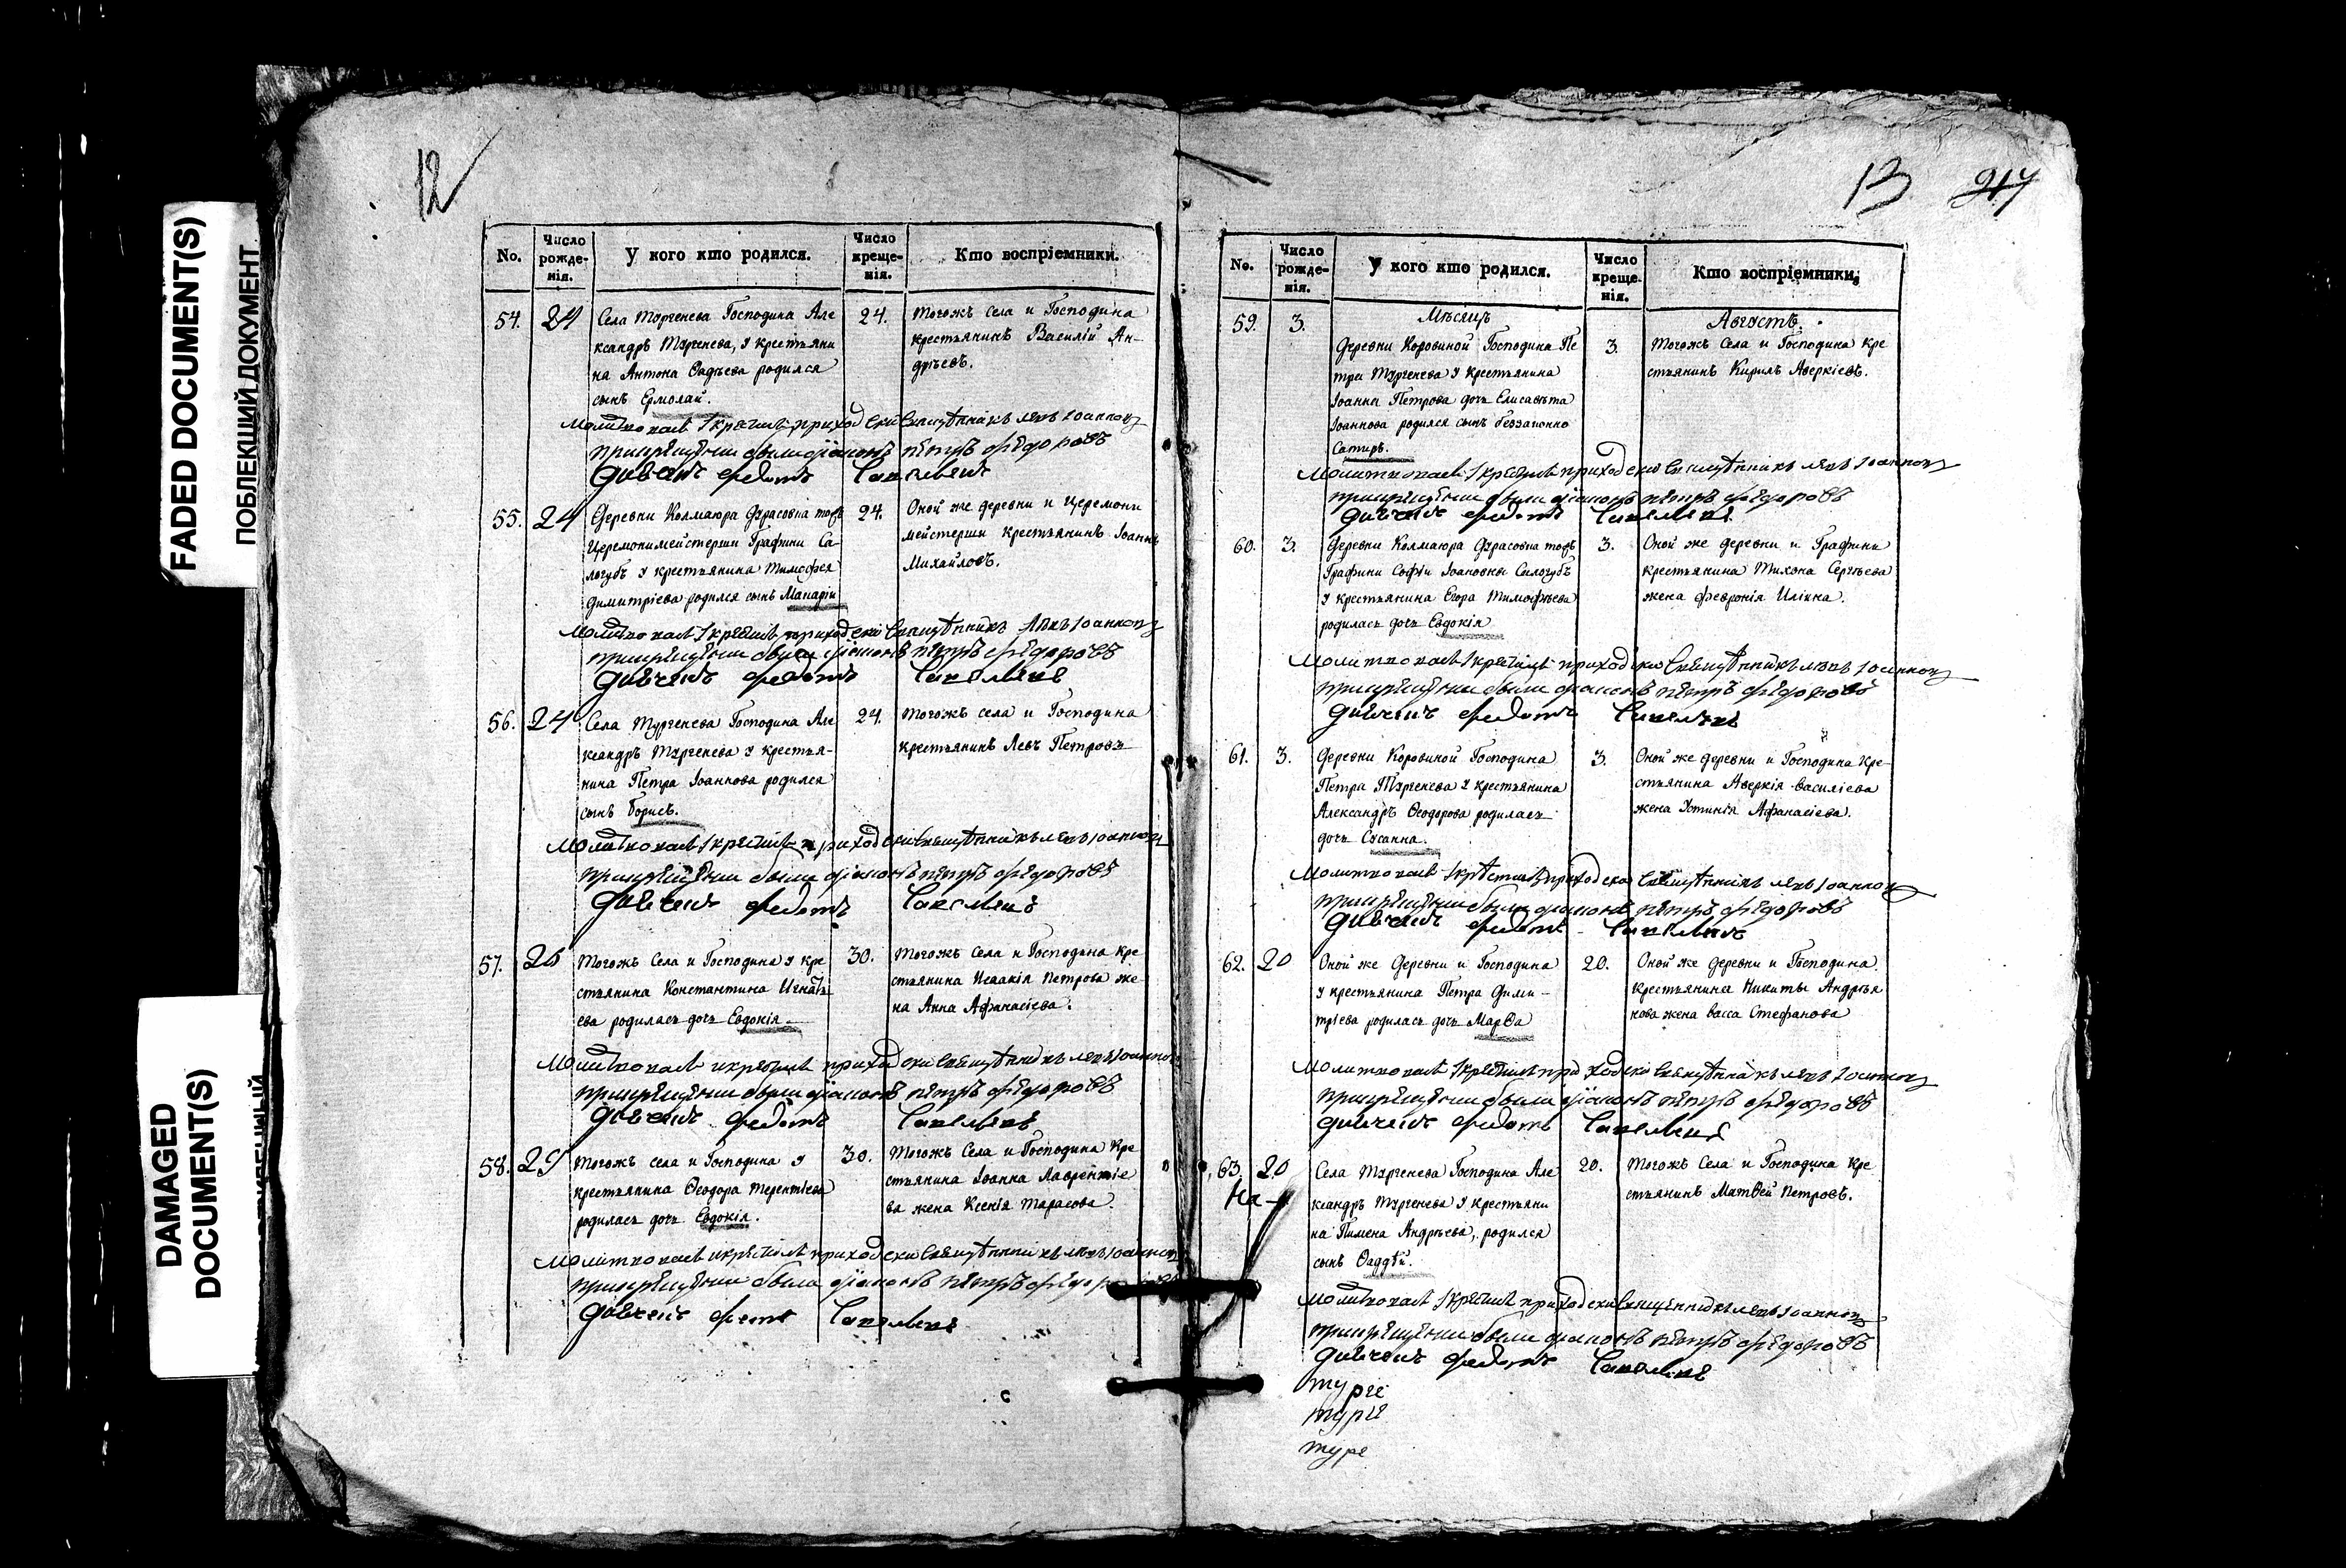 FADED DOCUMENT(S)
ПОБЛЕКЩИЙ ДОКУМЕНТ
DAMAGED
DOCUMENT(S)
12
No.
Число рожде-нія.
У кого кто родился.
Число креще-нія.
Кто воспріемники.
54. 24
Села Торгенева Господина Але
ксандръ Тургенева, у крестьяни
на Антона Фадѣева родился
сынъ Ермолай.
24.
Тогожъ села и Господина
крестьянинъ Василій Ан-
дрѣевъ.
Молитвовалъ и крестилъ приходскій священникъ левъ Іоанновъ
при крещеніи были діаконъ петръ федоровъ
дьячекъ федотъ Савельевъ
55. 24
Деревни Колмаюра Фурасовка тожъ
Церемонимейстерши Графини Са-
логубъ у крестьянина Тимофея
Димитріева родился сынъ Макарій
24.
Оной же деревни и Церемони
мейстерши крестьянинъ Іоаннъ
Михайловъ.
Молитвовалъ и крестилъ приходскій священникъ левъ Іоанновъ
при крещеніи были діаконъ петръ федоровъ
дьячекъ федотъ Савельевъ
56. 24
Села Тургенева Господина Але
ксандръ Тургенева у крестья-
нина Петра Іоаннова родился
сынъ Борисъ.
24.
Тогожъ села и Господина
крестьянинъ Левъ Петровъ
Молитвовалъ и крестилъ приходскій священникъ левъ Іоанновъ
при крещеніи были діаконъ петръ федоровъ
дьячекъ федотъ Савельевъ
57.
Тогожъ Села и Господина у кре
стьянина Константина Игнать
ева родилась дочь Евдокія.
30.
Тогожъ Села и Господина кре
стьянина Исаакія Петрова же
на Анна Афанасіева.
Молитвовалъ и крестилъ приходскій священникъ левъ Іоанновъ
при крещеніи были діаконъ петръ федоровъ
дьячекъ федотъ Савельевъ
58. 29
Тогожъ села и Господина у
крестьянина Ѳеодора Терентіева
родилась дочь Евдокія.
30.
Тогожъ Села и Господина Кре
стьянина Іоанна Лаврентіе
ва жена Ксенія Тарасова.
Молитвовалъ и крестилъ приходскій священникъ левъ Іоанновъ
при крещеніи были діаконъ петръ федоровъ
дьячекъ федотъ Савельевъ
13
No.
Число рожде-нія.
У кого кто родился.
Число креще-нія.
Кто воспріемники,
Мѣсяцъ Августъ.
59. 3.
Деревни Коровиной Господина Пе
тра Тургенева у крестьянина
Іоанна Петрова дочь Елисавѣта
Іоаннова родился сынъ беззаконно
Сатиръ.
3.
Тогожъ Села и Господина кре
стьянинъ Кирилъ Аверкіевъ.
Молитвовалъ и крестилъ приходскій священникъ левъ Іоанновъ
при крещеніи были діаконъ петръ федоровъ
дьячекъ федотъ Савельевъ
60. 3.
Деревни Колмаюра Фурасовка тожъ
Графини Софіи Іоановны Салогубъ
у крестьянина Егора Тимофѣева
родилась дочь Евдокія
3.
Оной же деревни и Графини
крестьянина Тихона Сергѣева
жена Февронія Иліина.
Молитвовалъ и крестилъ приходскій священникъ левъ Іоанновъ
при крещеніи были діаконъ петръ федоровъ
дьячекъ федотъ Савельевъ
61. 3.
Деревни Коровиной Господина
Петра Тургенева у крестьянина
Александръ Ѳеодорова родилась
дочь Сусанна.
3.
Оной же деревни и Господина Кре-
стьянина Аверкія Василіева
жена Устинія Афанасіева.
Молитвовалъ и крестилъ приходскій священникъ левъ Іоанновъ
при крещеніи были діаконъ петръ федоровъ
дьячекъ федотъ Савельевъ
62. 20
Оной же Деревни и Господина
у крестьянина Петра Дими-
тріева родилась дочь Марѳа
20.
Оной же деревни и Господина
крестьянина Никиты Андрѣя
нова жена Васса Стефанова
Молитвовалъ и крестилъ приходскій священникъ левъ Іоанновъ
при крещеніи были діаконъ петръ федоровъ
дьячекъ федотъ Савельевъ
63. 20
Села Тургенева Господина Але
ксандръ Тургенева у Крестьяни
на Пимена Андрѣева, родился
сынъ Ѳаддѣй.
20.
Тогожъ Села и Господина Кре
стьянинъ Матвей Петровъ.
Молитвовалъ и крестилъ приходскій священникъ левъ Іоанновъ
при крещеніи были діаконъ петръ федоровъ
дьячекъ федотъ Савельевъ
турге
турге
туре